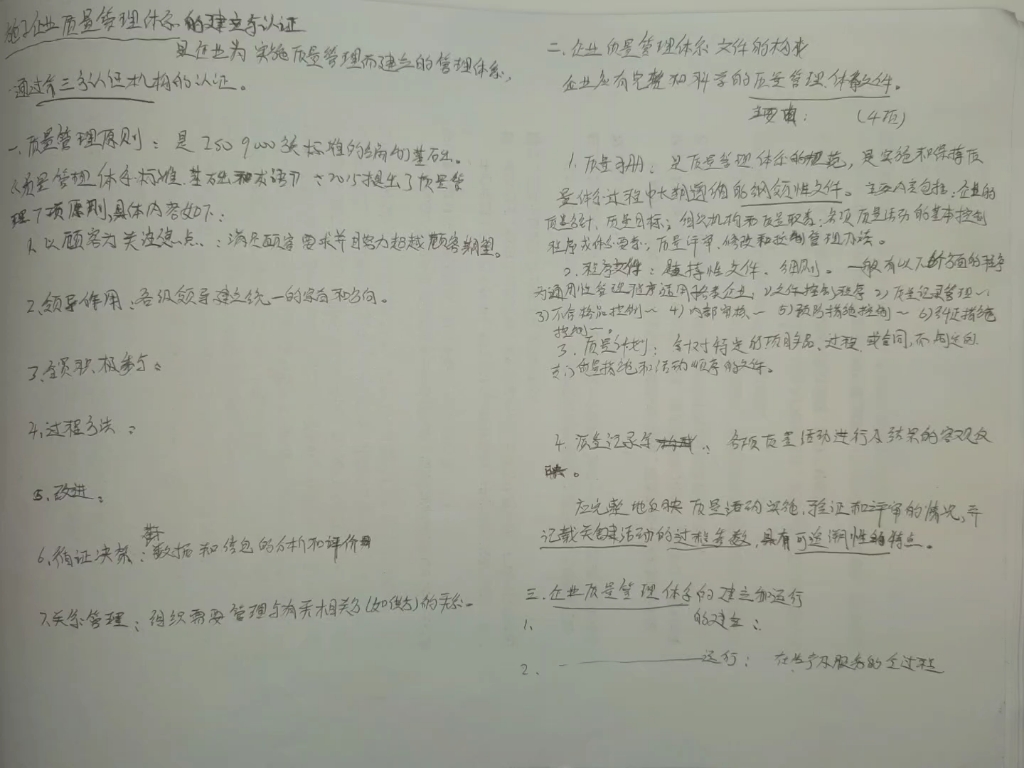 施工企业质量管理体系的建立与认证
是企业为实施质量管理而建立的管理体系,
通过第三方认证机构的认证。
一.质量管理原则：是ISO 9000族标准的编制基础。
《质量管理体系标准 基础和术语》 2015提出了质量管
理7项原则,具体内容如下：
1.以顾客为关注焦点：满足顾客要求并且努力超越顾客期望。
2.领导作用：各级领导建立统一的宗旨和方向。
3.全员积极参与。
4.过程方法：
5.改进：
6.循证决策：基于数据和信息的分析和评价
7.关系管理：组织需要管理与有关相关方(如供方)的关系
二.企业质量管理体系文件的构成
企业应有完整和科学的质量管理体系文件。
(4项)
1.质量手册：是质量管理体系的规范，是实施和保持质
量体系过程中长期遵循的纲领性文件。主要内容包括：企业的
质量方针、质量目标；组织机构和质量职责；各项质量活动的基本控制
程序或体系要素；质量评审、修改和控制管理办法。
2.程序文件：支持性文件、细则。一般有以下6个方面的程序
为通用性管理程序适用各类企业：1)文件控制程序 2)质量记录管理~
3)不合格品控制~ 4)内部审核~ 5)预防措施控制~ 6)纠正措施
控制~。
3.质量计划：针对特定的项目产品、过程或合同,而制定的
专门质量措施和活动顺序的文件。
4.质量记录：各项质量活动进行及结果的客观反
映。
应完整地反映质量活动实施、验证和评审的情况,并
记载关键活动的过程参数，具有可追溯性的特点。
三.企业质量管理体系的建立和运行
1. 的建立：
2. 运行：在生产及服务的全过程